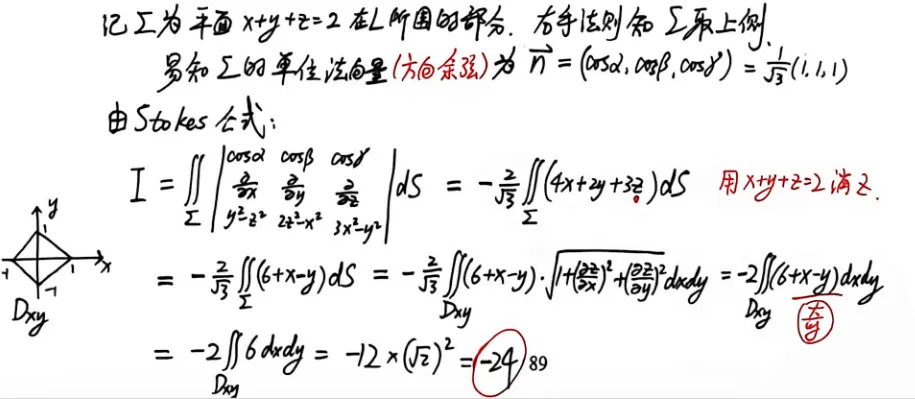 记Σ为平面 x+y+z=2 在L所围的部分. 右手法则知 Σ取上侧.
易知 Σ的单位法向量(方向余弦)为 n⃗ = (cosα, cosβ, cosγ) = 1/√3 (1,1,1)
由Stokes公式:
I = ∬_Σ |cosα cosβ cosγ; ∂/∂x ∂/∂y ∂/∂z; y²-z² 2z²-x² 3x²-y²| dS = -2/√3 ∬_Σ (4x+2y+3z) dS 用 x+y+z=2 消 z.
= -2/√3 ∬_Σ (6+x-y) dS = -2/√3 ∬_Dxy (6+x-y)·√(1+(∂z/∂x)²+(∂z/∂y)²) dxdy = -2∬_Dxy (6+x-y) dxdy
x/y
= -2∬_Dxy 6 dxdy = -12×(√2)² = -24 89
y
1
-1 1 x
-1
Dxy